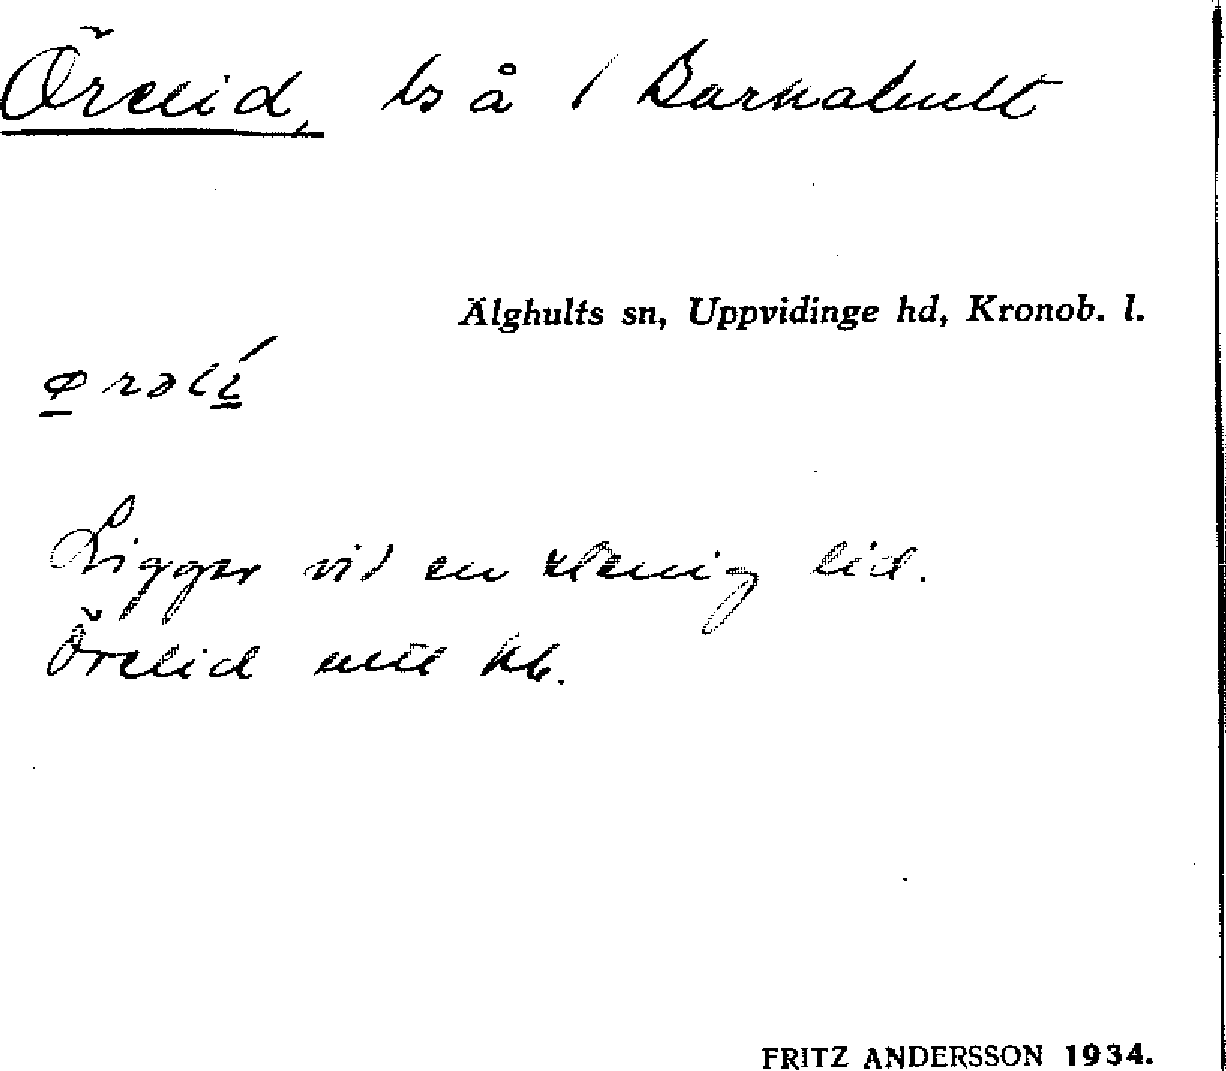 Örelid, ls å 1 Barnahult
Älghults sn, Uppvidinge hd, Kronob. l.
Ligger vid en stenig lid.
Örelid enl kb.
FRITZ ANDERSSON 1934.